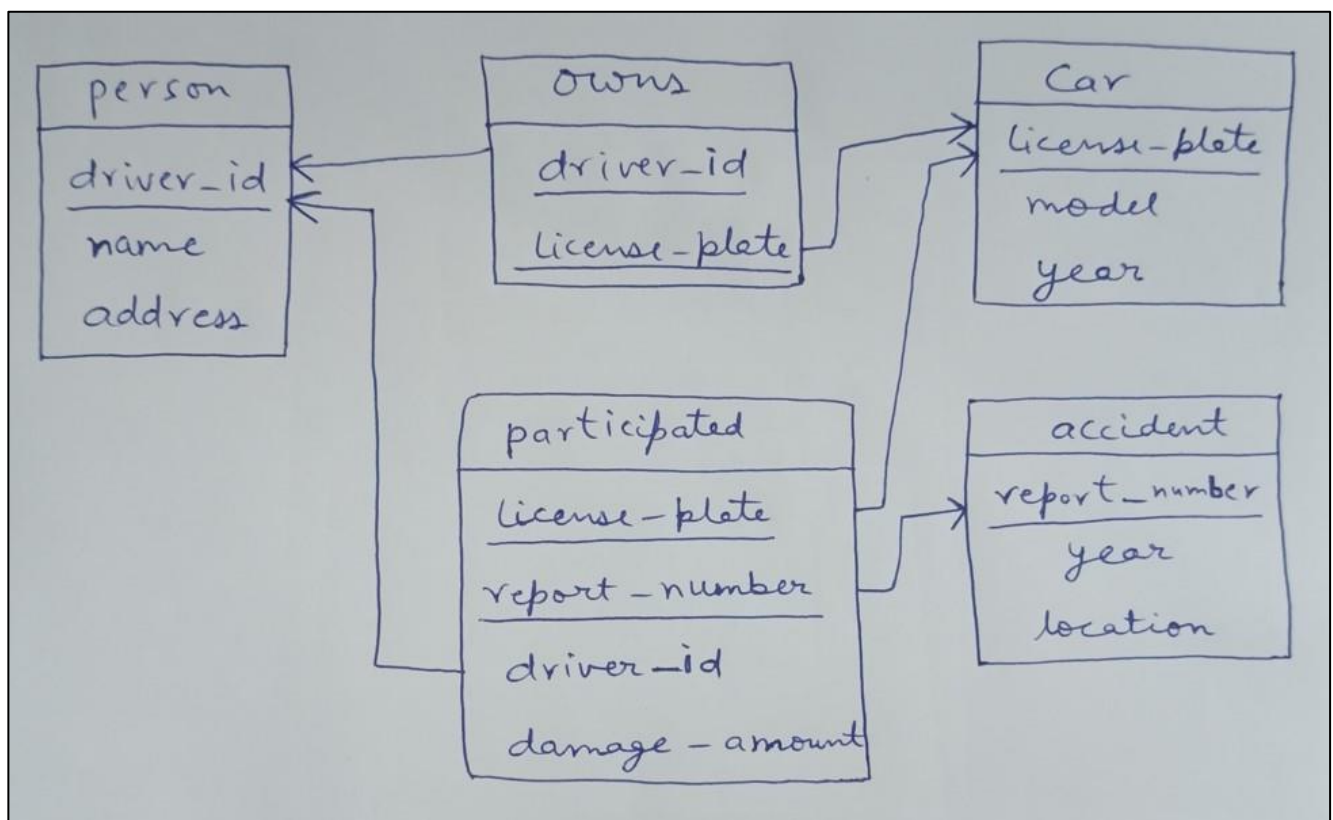 person
driver_id
name
address
owns
driver_id
license-plate
Car
license-plate
model
year
participated
license-plate
report-number
driver-id
damage-amount
accident
report_number
year
location